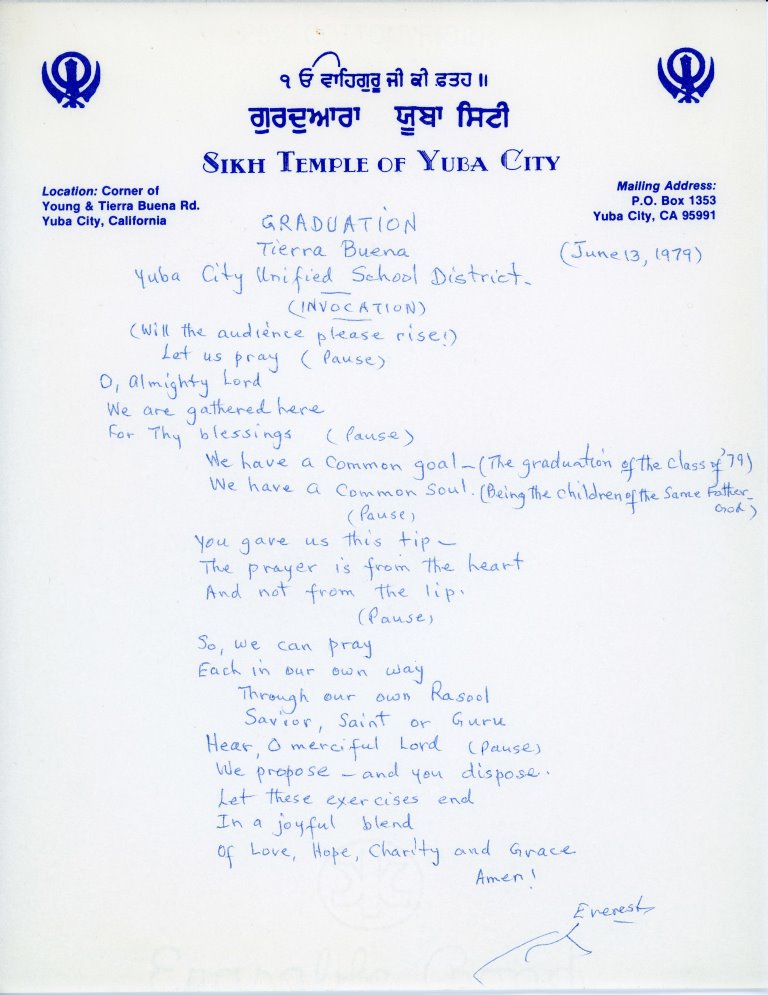 ੧ ਓ ਵਾਹਿਗੁਰੂ ਜੀ ਕੀ ਫ਼ਤਹ ॥
ਗੁਰਦੁਆਰਾ ਯੂਬਾ ਸਿਟੀ
SIKH TEMPLE OF YUBA CITY
Location: Corner of
Young & Tierra Buena Rd.
Yuba City, California
Mailing Address:
P.O. Box 1353
Yuba City, CA 95991
GRADUATION
Tierra Buena
(June 13, 1979)
Yuba City Unified School District-
(INVOCATION)
(Will the audience please rise!)
Let us pray (Pause)
O, Almighty Lord
We are gathered here
For Thy blessings (Pause)
We have a common goal - (The graduation of the Class of '79)
We have a common soul. (Being the children of the Same Father-
God)
(Pause)
You gave us this tip -
The prayer is from the heart
And not from the lip.
(Pause)
So, we can pray
Each in our own way
Through our own Rasool
Savior, Saint or Guru
Hear, O merciful Lord (Pause)
We propose - and you dispose.
Let these exercises end
In a joyful blend
Of Love, Hope, Charity and Grace
Amen!
Everest